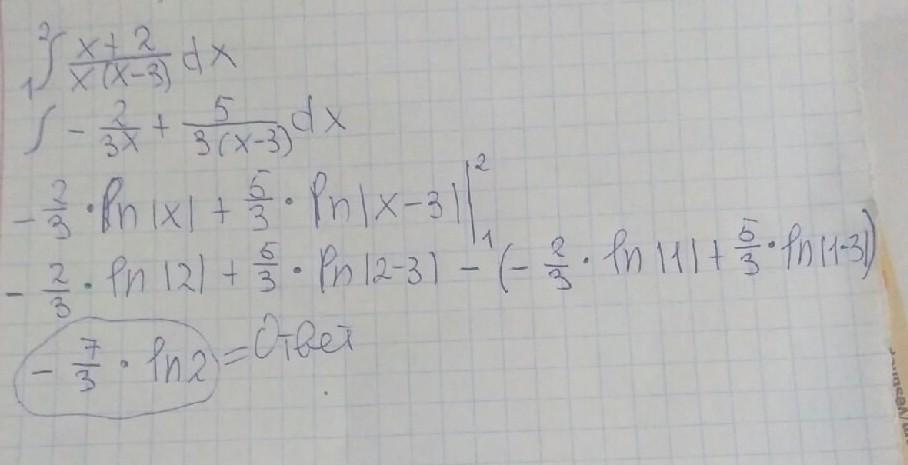 ₁∫² x+2/x(x-3) dx
∫ - 2/3x + 5/3(x-3) dx
- 2/3 · ln|x| + 5/3 · ln|x-3| |₁²
- 2/3 · ln|2| + 5/3 · ln|2-3| - (- 2/3 · ln|1| + 5/3 · ln|1-3|)
- 7/3 · ln2 = Ответ